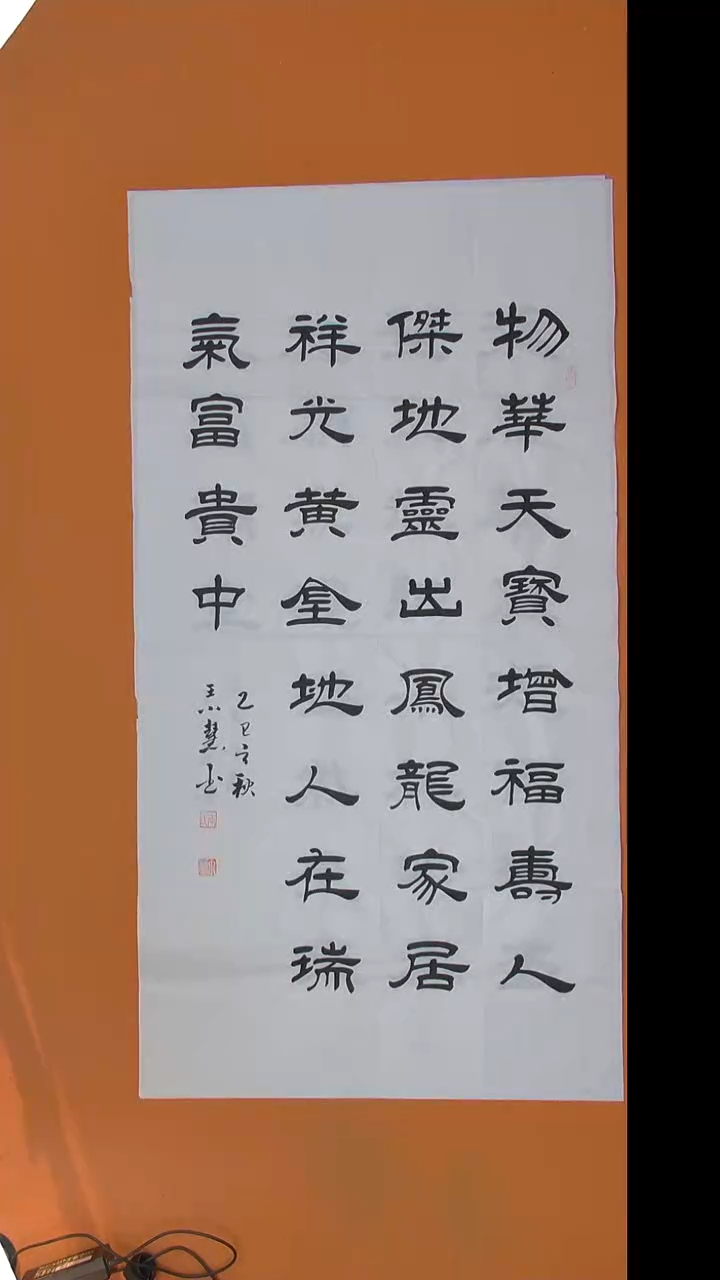 物華天寶增福壽人
傑地靈出鳳龍家居
祥光黃金地人在瑞
氣富貴中
乙巳之秋
慧書